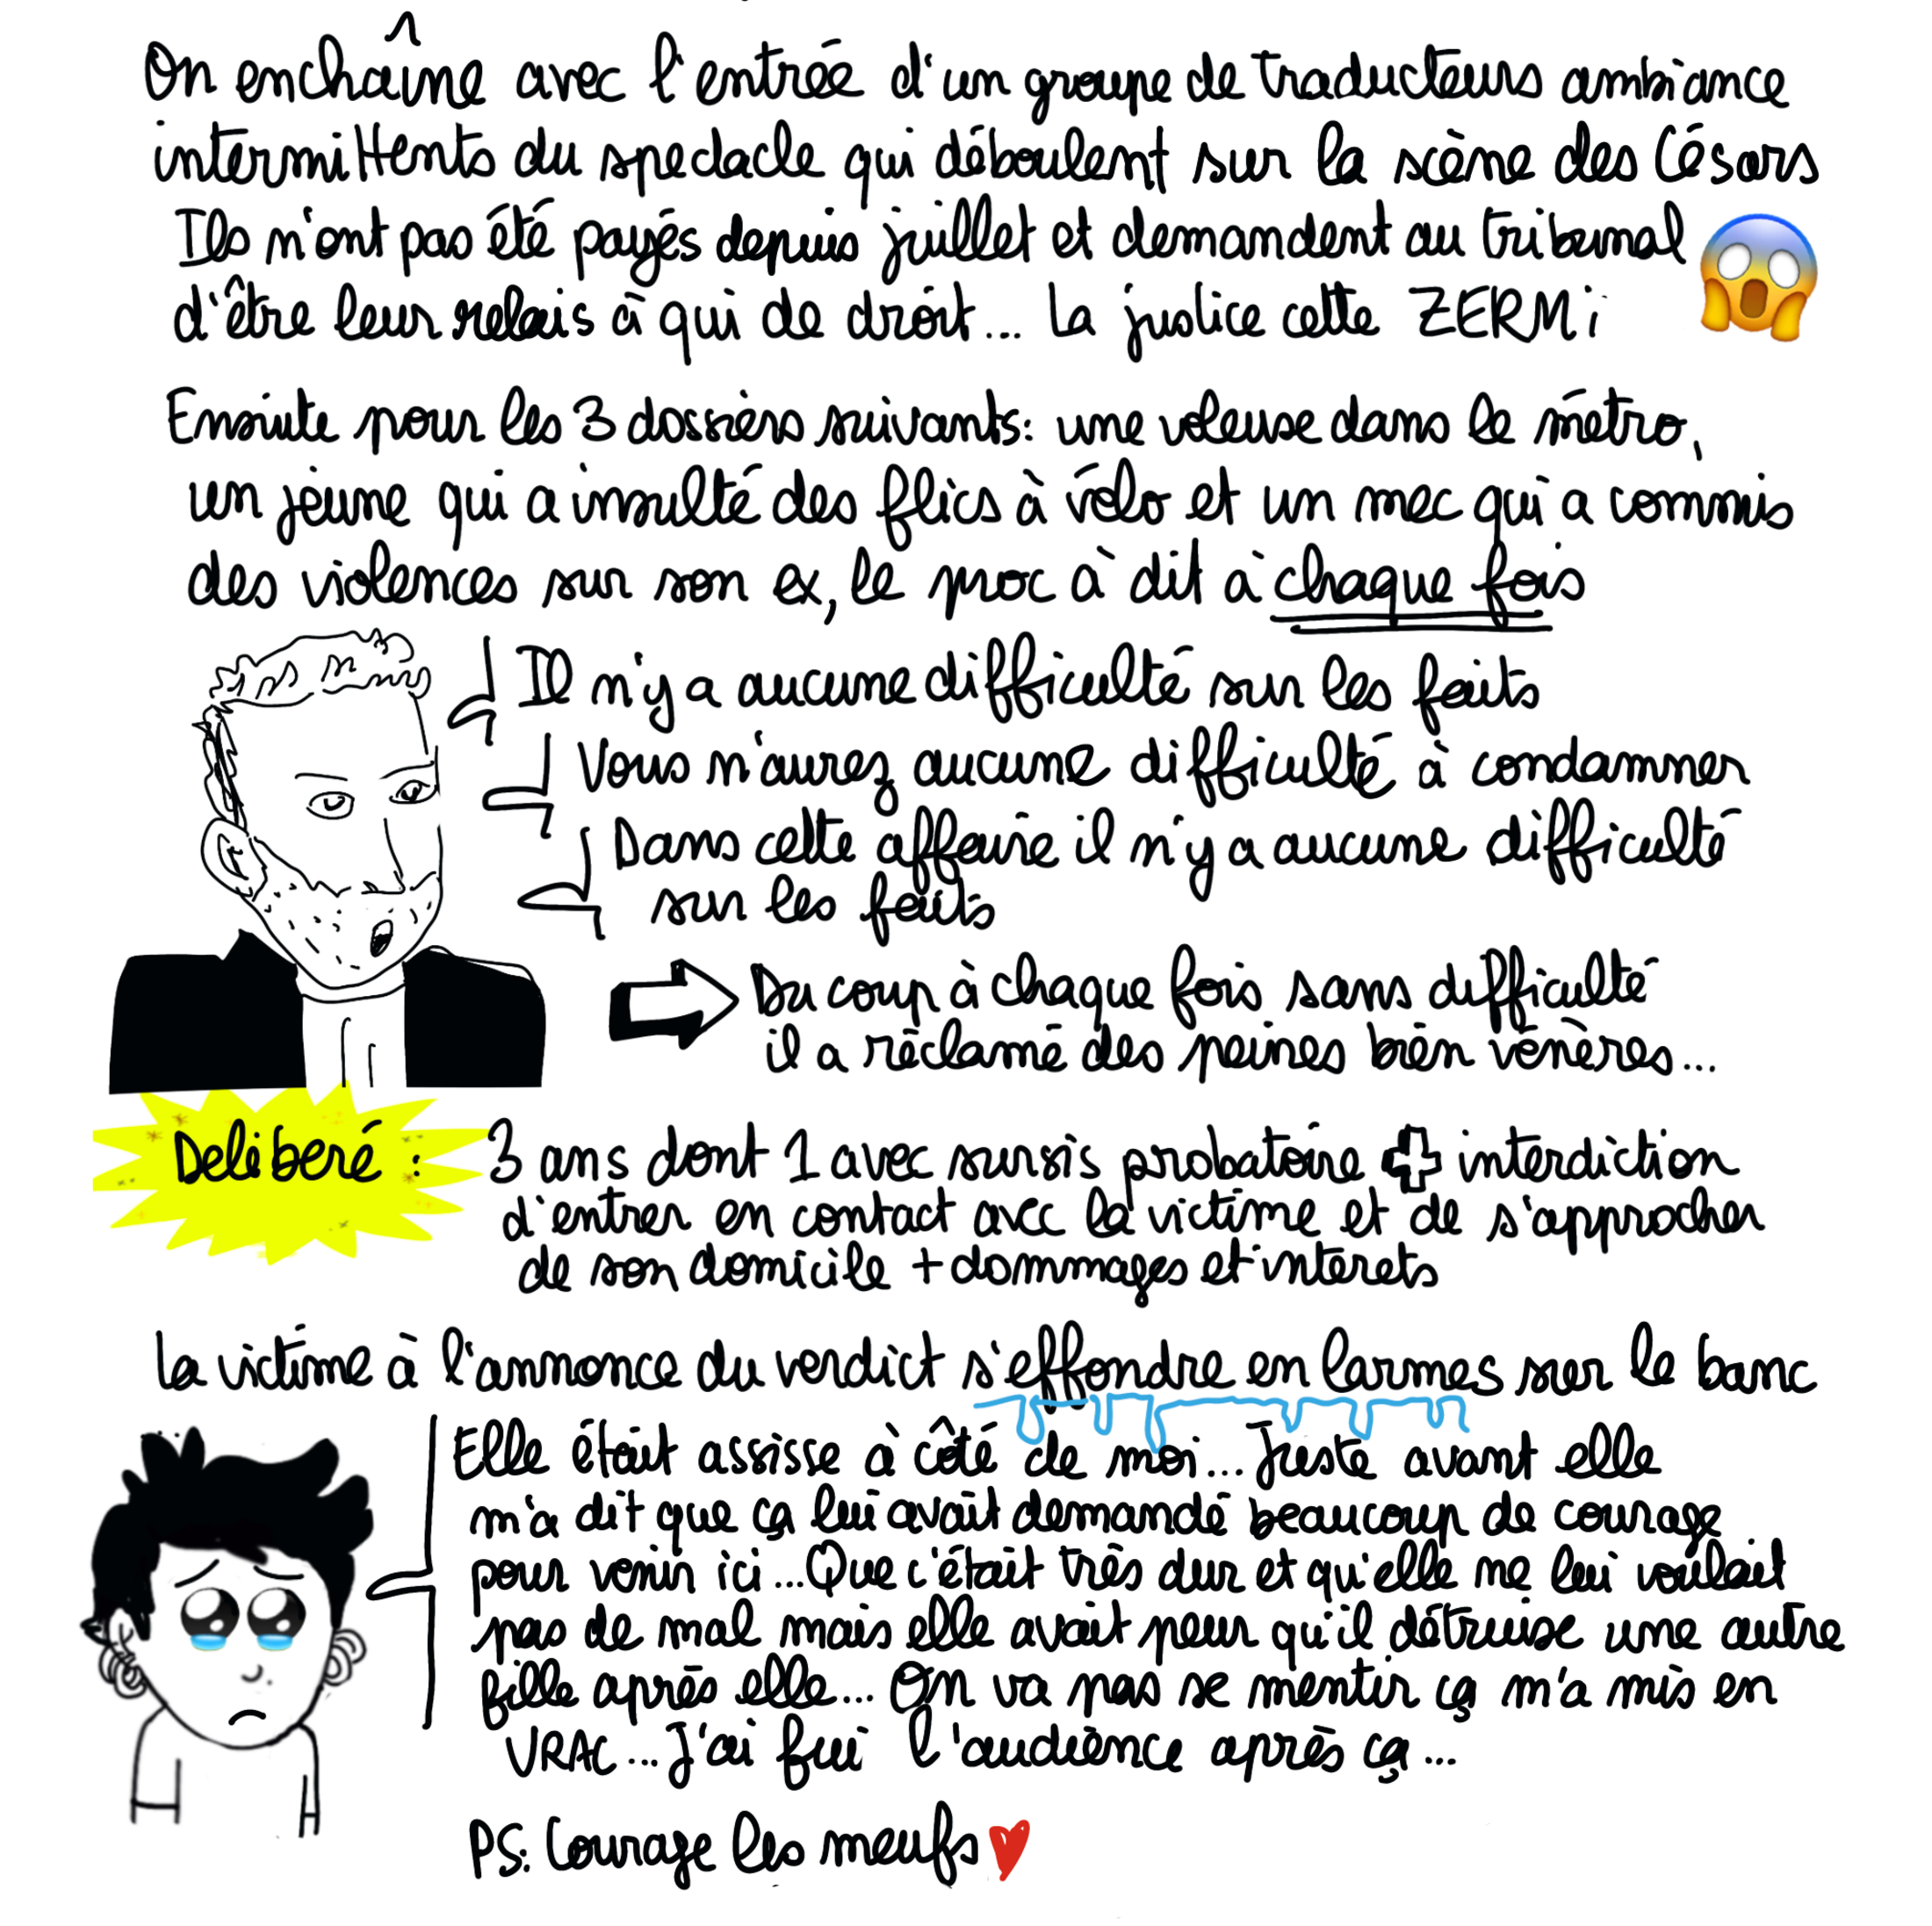 On enchaîne avec l'entrée d'un groupe de traducteurs ambiance
intermittents du spectacle qui déboulent sur la scène des Césars
Ils n'ont pas été payés depuis juillet et demandent au tribunal
d'être leur relais à qui de droit... La justice cette ZERMi
Ensuite pour les 3 dossiers suivants: une voleuse dans le métro,
un jeune qui a insulté des flics à vélo et un mec qui a commis
des violences sur son ex, le proc à dit à chaque fois
Il n'y a aucune difficulté sur les faits
Vous n'aurez aucune difficulté à condamner
Dans cette affaire il n'y a aucune difficulté
sur les faits
Du coup à chaque fois sans difficulté
il a réclamé des peines bien vénères...
Deliberé :
3 ans dont 1 avec sursis probatoire + interdiction
d'entrer en contact avec la victime et de s'approcher
de son domicile + dommages et interets
La victime à l'annonce du verdict s'effondre en larmes sur le banc
Elle était assisse à côté de moi... Juste avant elle
m'a dit que ça lui avait demandé beaucoup de courage
pour venir ici... Que c'était très dur et qu'elle ne lui voulait
pas de mal mais elle avait peur qu'il détruise une autre
fille après elle... On va pas se mentir ça m'a mis en
VRAC... J'ai fui l'audience après ça...
PS: Courage les meufs